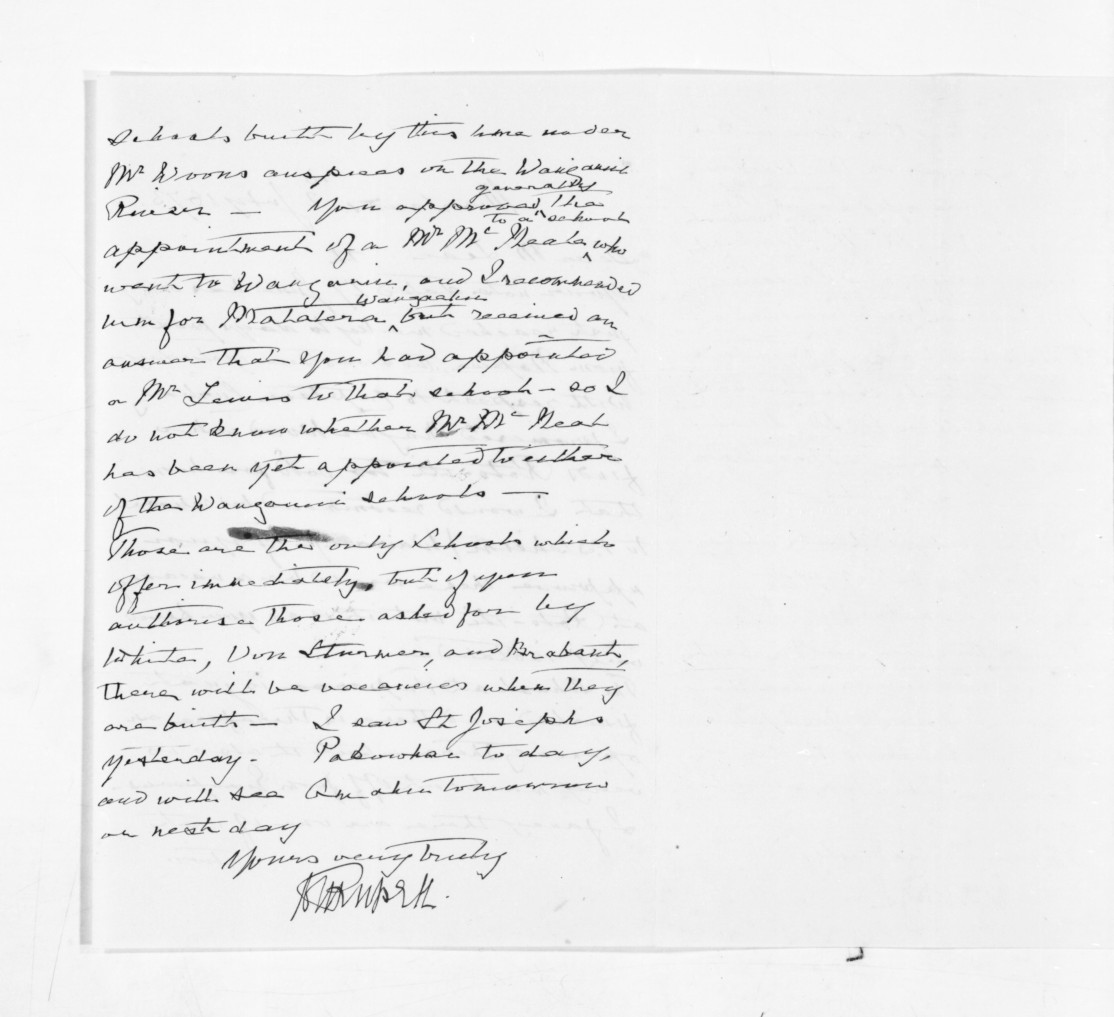 schools built by this time under
Mr Woons auspices on the Wanganui
River — You approved generally the
appointment of a Mr McNeal to a school, who
went to Wanganui, and I recommended
him for Matatera Wangaehu but received an
answer that you had appointed
a Mr Lewis to that school — so I
do not know whether Mr McNeal
has been yet appointed to either
of the Wanganui schools —.
Those are the only Schools which
offer immediately, but if you
authorise those asked for by
White, Von Sturmer, and Brabant,
there will be vacancies when they
are built — I saw St Josephs
yesterday - Pakowhai to day,
and will see Omahu tomorrow
or next day
Yours very truly
HRRussell.